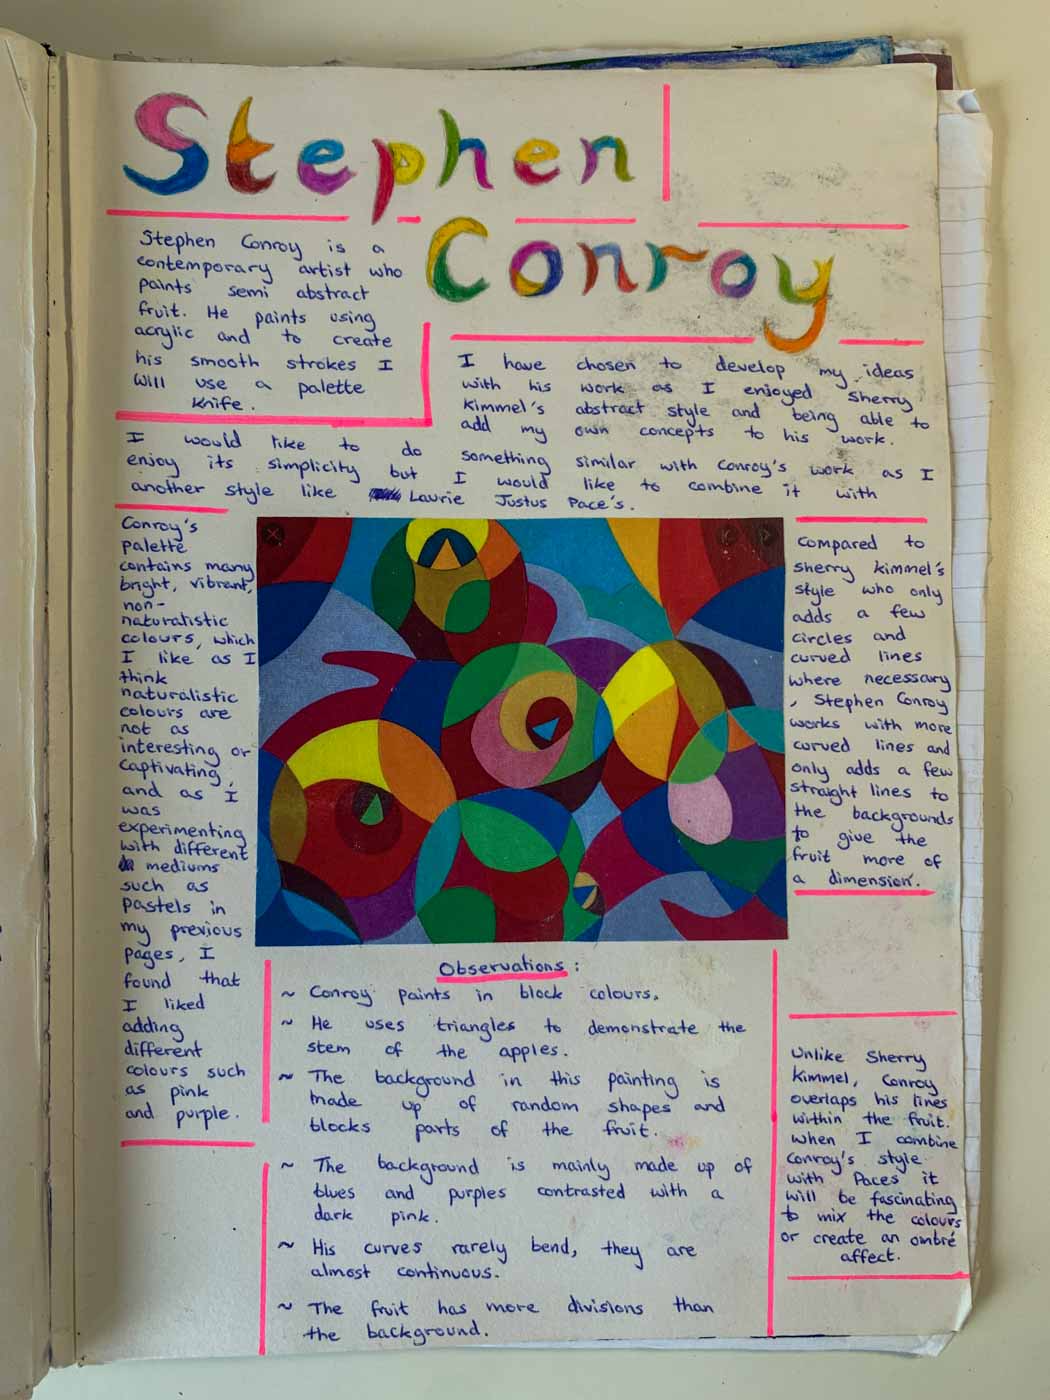 Stephen
Conroy
Stephen Conroy is a
contemporary artist who
paints semi abstract
fruit. He paints using
acrylic and to create
his smooth strokes I
will use a palette
knife.
I have chosen to develop my ideas
with his work as I enjoyed Sherry
Kimmel's abstract style and being able to
add my own concepts to his work.
I would like to do something similar with Conroy's work as I
enjoy its simplicity but I would like to combine it with
another style like Laurie Justus Pace's.
Conroy's
palette
contains many
bright, vibrant,
non-
naturalistic
colours, which
I like as I
think
naturalistic
colours are
not as
interesting or
captivating,
and as I
was
experimenting
with different
mediums
such as
pastels in
my previous
pages, I
found that
I liked
adding
different
colours such
as pink
and purple.
Compared to
Sherry Kimmel's
style who only
adds a few
circles and
curved lines
where necessary
, Stephen Conroy
works with more
curved lines and
only adds a few
straight lines to
the backgrounds
to give the
fruit more of
a dimension.
Observations:
~ Conroy paints in block colours.
~ He uses triangles to demonstrate the
stem of the apples.
~ The background in this painting is
made up of random shapes and
blocks parts of the fruit.
~ The background is mainly made up of
blues and purples contrasted with a
dark pink.
~ His curves rarely bend, they are
almost continuous.
~ The fruit has more divisions than
the background.
Unlike Sherry
Kimmel, Conroy
overlaps his lines
within the fruit.
When I combine
Conroy's style
with Paces it
will be fascinating
to mix the colours
or create an ombré
affect.